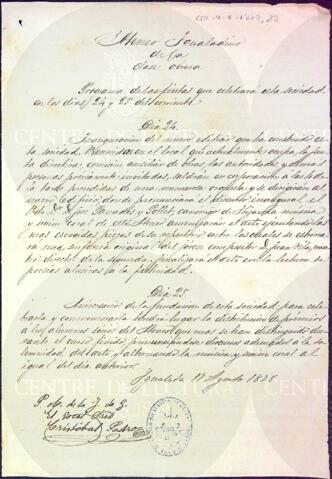 Ateneo Igualadino
de la
clase obrera
Programa de las fiestas que celebrará esta sociedad
en los dias 24 y 25 del corriente
Dia 24.
Inauguracion del nuevo edificio que ha construido es-
ta sociedad. Reunidos en el local que actualmente ocupa, la Junta
directiva, comision auxiliar de obras, las autoridades y demas
personas previamente invitadas, saldrán en corporacion á las
de la tarde precedidas de una numerosa orquesta y se dirigirán al
nuevo edificio, donde pronunciará el discurso inaugural el
Rdo. Dr. D. Jose canonigo de
y coral de este Ateneo amenizarán el acto ejecutando las
mas escogidas piezas de su repertorio entre las cuales se estrena-
rá una sinfonia original del jóven compositor D. Juan
director de la segunda, finalizará el acto con la lectura de
poesias alusivas á la festividad.
Dia 25.
Aniversario de la fundacion de esta sociedad, para cele-
brarla y conmemorarla tendrá lugar la distribucion de premios
á los alumnos socios del Ateneo que mas se han distinguido du-
rante el curso finido, pronunciandose discursos adecuados á la so-
lemnidad del acto, y alternando la musica y seccion coral al
igual del dia anterior.
Igualada 17 Agosto 1878
P. A. de la J. de G.
El Vocal Srio
Cristóbal Padrós